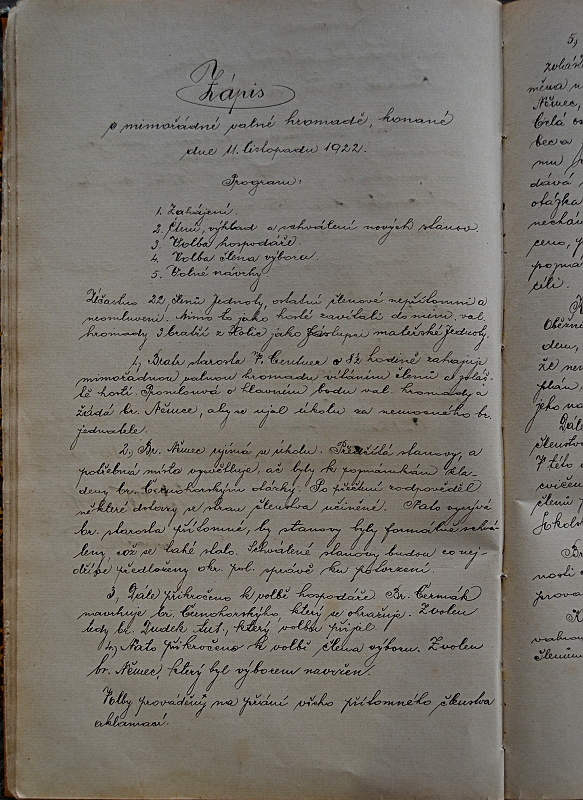 Zápis
o mimořádné valné hromadě, konané
dne 11. listopadu 1922.
Program:
1. Zahájení.
2. Čtení, výklad a schválení nových stanov.
3. Volba hospodáře.
4. Volba člena výboru.
5. Volné návrhy.
22 členů Jednoty, ostatní členové nepřítomni a
neomluveni. Mimo to jako hosté zavítali do mim. val.
hromady 3 bratří z Holic jako zástupci mateřské Jednoty.
1, Bratr starosta V. Centner o 8½ hodině zahajuje
mimořádnou valnou hromadu vítáním členů a
hostí. Promlouvá o hlavním bodu val. hromady a
žádá br. Němce, aby se ujal úkolu za nemocného br.
jednatele.
2, Br. Němec ujímá se úkolu. Předčítá stanovy, a
potřebná místa vysvětluje, až byly k poznámkám kla-
deny br. Černohorským otázky. Po přečtení zodpověděl
některé dotazy se stran členstva učiněné. Nato vyzývá
br. starosta přítomné, by stanovy byly formálně schvá-
leny, což se také stalo. Schválené stanovy budou co nej-
dříve předloženy okr. pol. správě ku potvrzení.
3, Dále přikročeno k volbě hospodáře. Br. Čermák
navrhuje br. Černohorského který se ohražuje. Zvolen
tedy br. Dudek Ant., který volbu přijal.
4, Nato přikročeno k volbě člena výboru. Zvolen
br. Němec, který byl výborem navržen.
Volby prováděny na přání všeho přítomného členstva
aklamací.
5,
měna
Němec,
Celá
mu
dává
otázka
ceno,
cíli.
dem,
že
plán
jeho
Dále
členstv
V této
cvičen
členů
Sokol
Br.
nosti
prova
členům